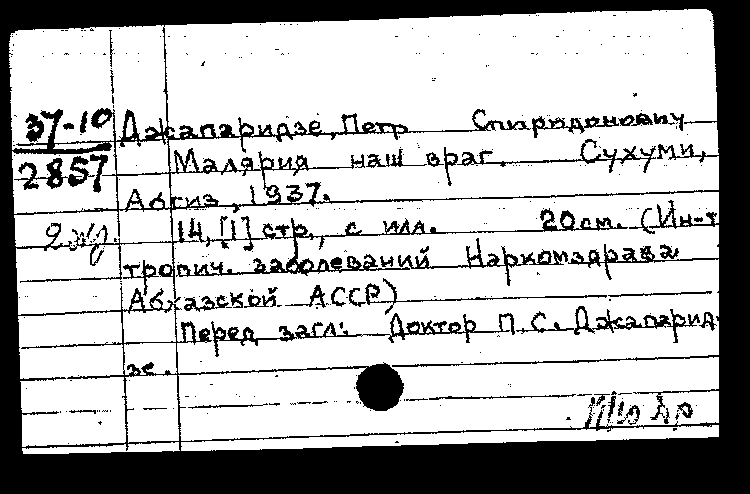 37-10 Джапаридзе, Петр Спиридонович
2857 Малярия наш враг. Сухуми,
Абгиз, 1937.
2 экз. 14, [1] стр., с илл. 20 см. (Ин-т
тропич. заболеваний Наркомздрава
Абхазской АССР)
Перед загл.: Доктор П. С. Джапарид-
зе.